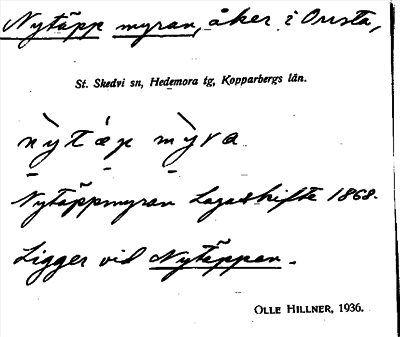 Nytäpp myran, åker i Onsta,
St. Skedvi sn, Hedemora tg, Kopparbergs län.
nỳtäp mỳra
Nytäppmyran Lagaskifte 1868.
Ligger vid Nytäppan.
OLLE HILLNER, 1936.